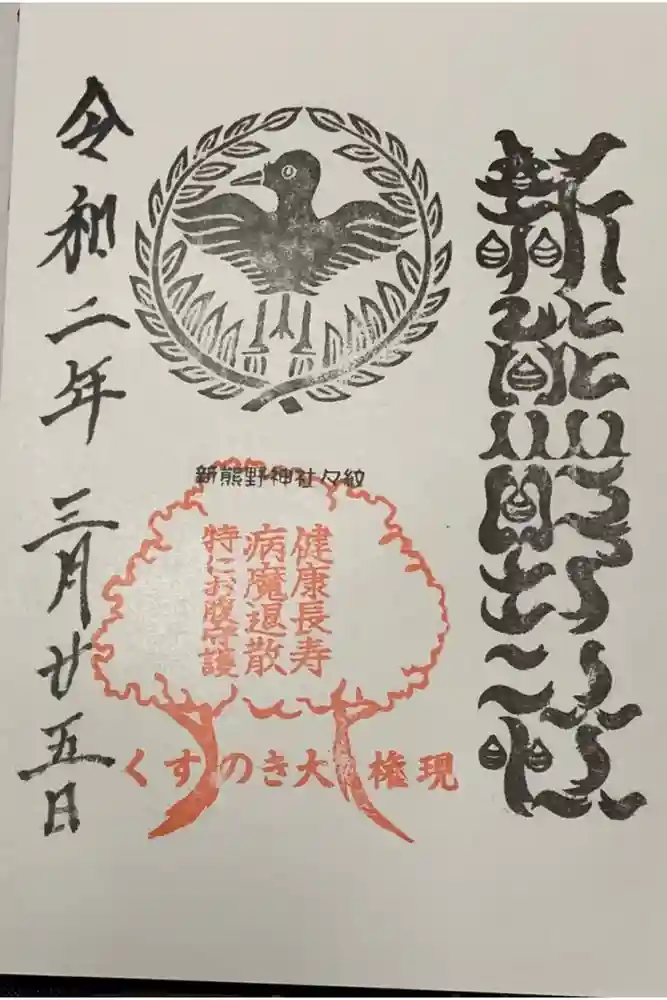 新熊野
新熊野神社々紋
健康長寿
病魔退散
特にお腹守護
くすのき大権現
令和二年 三月廿五日